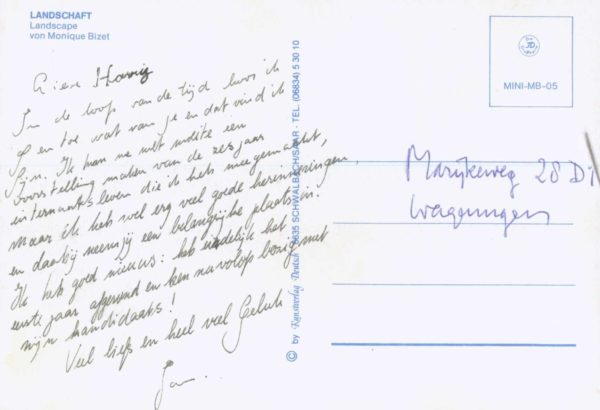 LANDSCHAFT
Landscape
von Monique Bizet
MINI-MB-05
In de loop van de tijd hoor ik
af en toe wat van je en dat vind ik
fijn. Ik kan me wel een
voorstelling maken van de zes jaar
internaatsleven die ik heb meegemaakt,
maar ik heb wel erg veel goede herinneringen
en daarbij neem jij een belangrijke plaats in.
Ik heb goed nieuws: heb eindelijk het
eerste jaar afgerond en ben nu volop bezig met
mijn kandidaats!
Veel liefs en heel veel Geluk
© by Kunstverlag Deutsch 6635 SCHWALBACH/SAAR - TEL. (06834) 5 30 10
Marijkeweg 28 D1
Wageningen